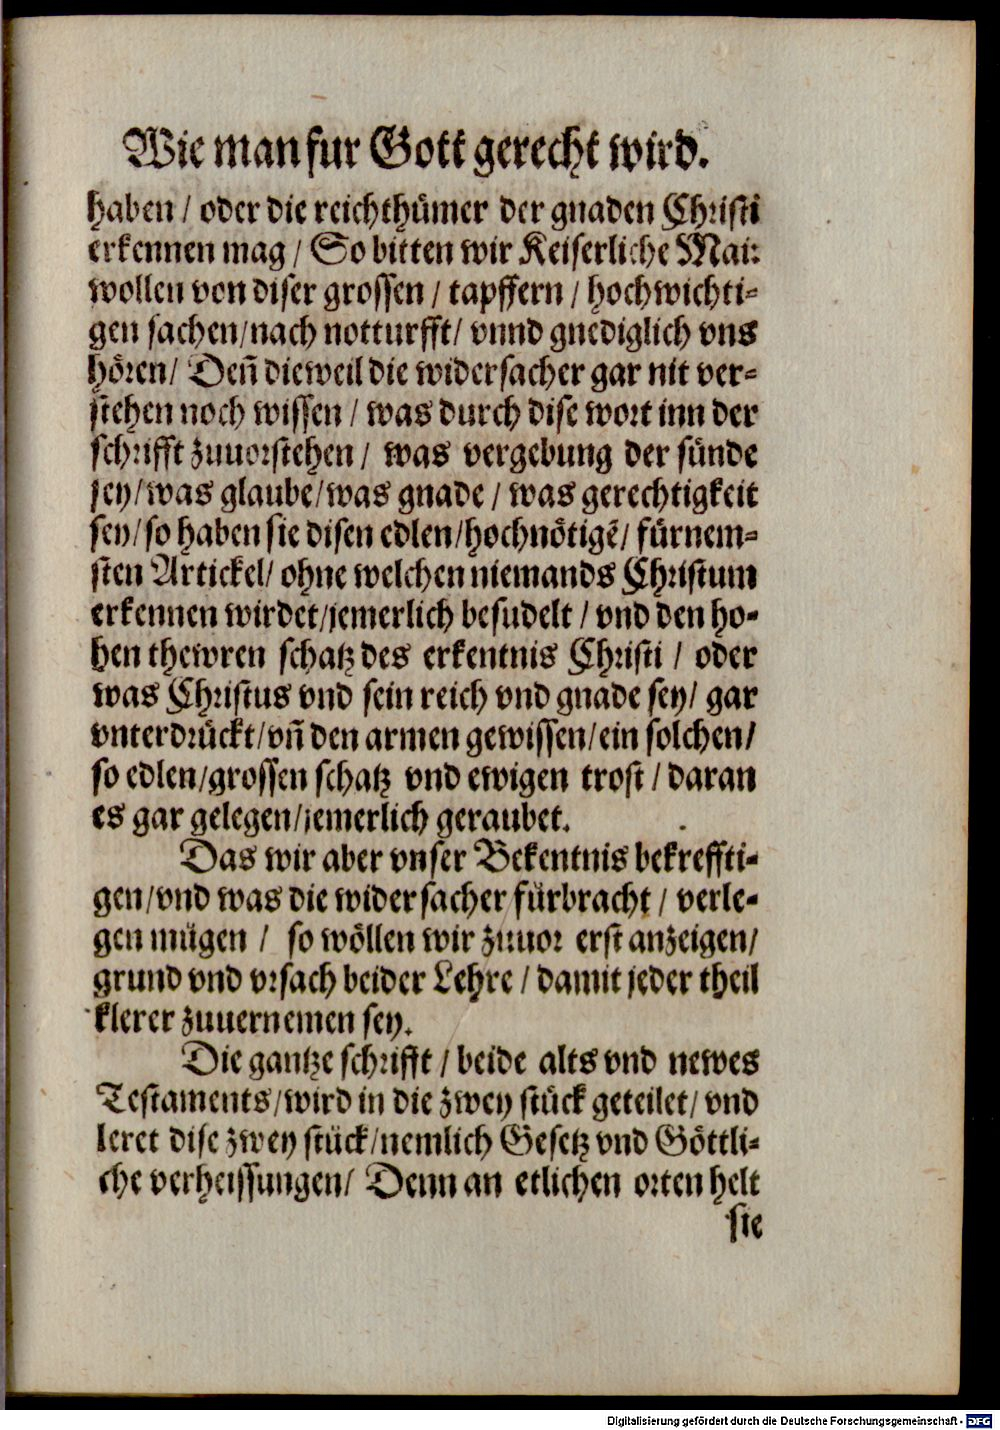 Wie man fur Gott gerecht wird.
haben / oder die reichthümer der gnaden Christi
erkennen mag / So bitten wir Keiserliche Mai:
wollen von diser grossen / tapffern / hochwichti-
gen sachen/nach notturfft/ vnnd gnediglich vns
hören/ Deñ dieweil die widersacher gar nit ver-
stehen noch wissen / was durch dise wort inn der
schrifft zuuorstehen / was vergebung der sünde
sey/was glaube/was gnade / was gerechtigkeit
sey/so haben sie disen edlen/hochnötigẽ/ fürnem-
sten Artickel/ ohne welchen niemands Christum
erkennen wirdet/jemerlich besudelt / vnd den ho-
hen thewren schatz des erkentnis Christi / oder
was Christus vnd sein reich vnd gnade sey/ gar
vnterdrückt/vñ den armen gewissen/ein solchen/
so edlen/grossen schatz vnd ewigen trost / daran
es gar gelegen/jemerlich geraubet.
Das wir aber vnser Bekentnis bekreffti-
gen/vnd was die widersacher fürbracht / verle-
gen mügen / so wöllen wir zuuor erst anzeigen/
grund vnd vrsach beider Lehre / damit jeder theil
klerer zuuernemen sey.
Die gantze schrifft / beide alts vnd newes
Testaments/wird in die zwey stück geteilet/ vnd
leret dise zwey stück/nemlich Gesetz vnd Göttli-
che verheissungen/ Denn an etlichen orten helt
sie
Digitalisierung gefördert durch die Deutsche Forschungsgemeinschaft - DFG